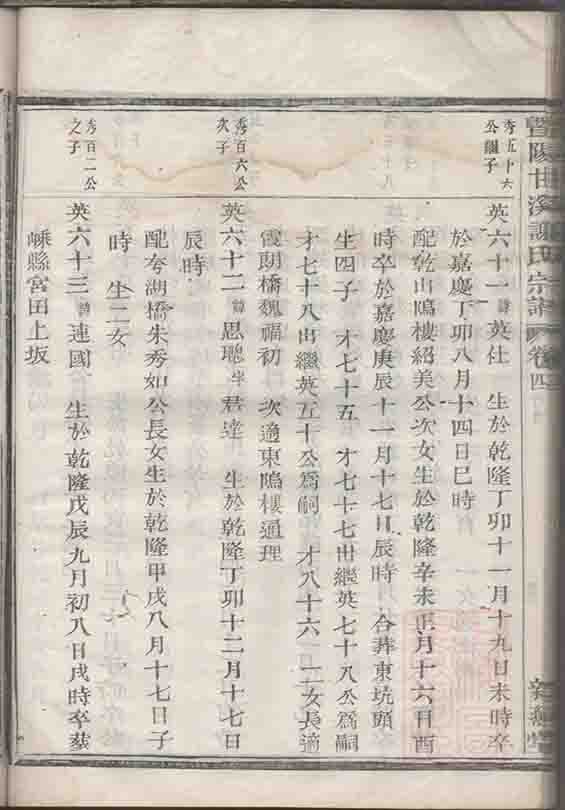 暨陽甘溪謝氏宗譜 卷四
秀五十六
公繼子
英六十一 諱英仕 生於乾隆丁卯十一月十九日未時卒
於嘉慶丁卯八月十四日巳時
配乾山隖樓紹美公次女生於乾隆辛未正月十六日酉
時卒於嘉慶庚辰十一月十七日辰時 合葬東坑頭
生四子 才七十五 才七十七出繼英七十八公為嗣
才七十八出繼英五十公為嗣 才八十六 二女長適
霞朗橋魏福初 次適東隖樓通理
秀百六公
次子
英六十二 諱思聰字君達 生於乾隆丁卯十二月十七日
辰時
配夸湖橋朱秀如公長女生於乾隆甲戌八月十七日子
時 生二女
秀百二公
之子
英六十三 諱連國 生於乾隆戊辰九月初八日戌時卒葬
嵊縣宮田上坂